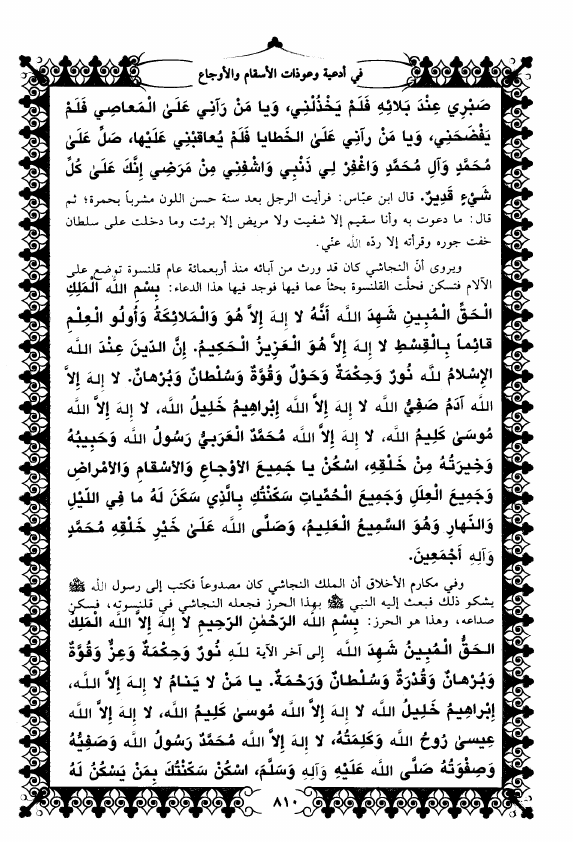 في أدعية وعوذات الأسقام والأوجاع
صَبْرِي عِنْدَ بَلائِهِ فَلَمْ يَخْذُلْنِي، وَيا مَنْ رَآنِي عَلَىٰ الْمَعاصِي فَلَمْ
يَفْضَحْنِي، وَيا مَنْ رآنِي عَلَىٰ الخَطايا فَلَمْ يُعاقِبْنِي عَلَيْها، صَلِّ عَلَىٰ
مُحَمَّدٍ وَآلِ مُحَمَّدٍ وَاغْفِرْ لِي ذَنْبِي وَاشْفِنِي مِنْ مَرَضِي إِنَّكَ عَلَىٰ كُلِّ
شَيْءٍ قَدِيرٌ. قال ابن عبّاس: فرأيت الرجل بعد سنة حسن اللون مشرباً بحمرة؛ ثم
قال: ما دعوت به وأنا سقيم إلا شفيت ولا مريض إلا برئت وما دخلت على سلطان
خفت جوره وقرأته إلا ردّه الله عنّي.
ويروى أنّ النجاشي كان قد ورث من آبائه منذ أربعمائة عام قلنسوة توضع على
الآلام فتسكن فحلّت القلنسوة بحثاً عما فيها فوجد فيها هذا الدعاء: بِسْمِ اللهِ الْمَلِكِ
الْحَقِّ الْمُبِينِ شَهِدَ اللهُ أَنَّهُ لا إِلهَ إِلاَّ هُوَ وَالْمَلائِكَةُ وَأُولُو العِلْمِ
قائِماً بِالْقِسْطِ لا إِلهَ إِلاَّ هُوَ الْعَزِيزُ الْحَكِيمُ. إِنَّ الدِّينَ عِنْدَ اللهِ
الإِسْلامُ للهِ نُورٌ وَحِكْمَةٌ وَحَوْلٌ وَقُوَّةٌ وَسُلْطانٌ وَبُرْهانٌ. لا إِلهَ إِلاَّ
اللهُ آدَمُ صَفِيُّ اللهِ لا إِلهَ إِلاَّ اللهُ إِبْراهِيمُ خَلِيلُ اللهِ، لا إِلهَ إِلاَّ اللهُ
مُوسَىٰ كَلِيمُ اللهِ، لا إِلهَ إِلاَّ اللهُ مُحَمَّدٌ الْعَرَبِيُّ رَسُولُ اللهِ وَحَبِيبُهُ
وَخِيرَتُهُ مِنْ خَلْقِهِ، اسْكُنْ يا جَمِيعَ الأَوْجاعِ وَالأَسْقامِ وَالأَمْراضِ
وَجَمِيعَ العِلَلِ وَجَمِيعَ الْحُمِّياتِ سَكَّنْتُكِ بِالَّذِي سَكَنَ لَهُ ما فِي اللَّيْلِ
وَالنَّهارِ وَهُوَ السَّمِيعُ الْعَلِيمُ، وَصَلَّى اللهُ عَلَىٰ خَيْرِ خَلْقِهِ مُحَمَّدٍ
وَآلِهِ أَجْمَعِينَ.
وفي مكارم الأخلاق أن الملك النجاشي كان مصدوعاً فكتب إلى رسول الله ﷺ
يشكو ذلك فبعث إليه النبي ﷺ بهذا الحرز فجعله النجاشي في قلنسوته، فسكن
صداعه، وهذا هو الحرز: بِسْمِ اللهِ الرَّحْمٰنِ الرَّحِيمِ لا إِلهَ إِلاَّ اللهُ الْمَلِكُ
الحَقُّ الْمُبِينُ شَهِدَ اللهُ إلى آخر الآية للّهِ نُورٌ وَحِكْمَةٌ وَعِزٌّ وَقُوَّةٌ
وَبُرْهانٌ وَقُدْرَةٌ وَسُلْطانٌ وَرَحْمَةٌ. يا مَنْ لا يَنامُ لا إِلهَ إِلاَّ اللهُ،
إِبْراهِيمُ خَلِيلُ اللهِ لا إِلهَ إِلاَّ اللهُ مُوسىٰ كَلِيمُ اللهِ، لا إِلهَ إِلاَّ اللهُ
عِيسىٰ رُوحُ اللهِ وَكَلِمَتُهُ، لا إِلهَ إِلاَّ اللهُ مُحَمَّدٌ رَسُولُ اللهِ وَصَفِيُّهُ
وَصِفْوَتُهُ صَلَّى اللهُ عَلَيْهِ وَآلِهِ وَسَلَّمَ، اسْكُنْ سَكَّنْتُكَ بِمَنْ يَسْكُنُ لَهُ
٨١٠